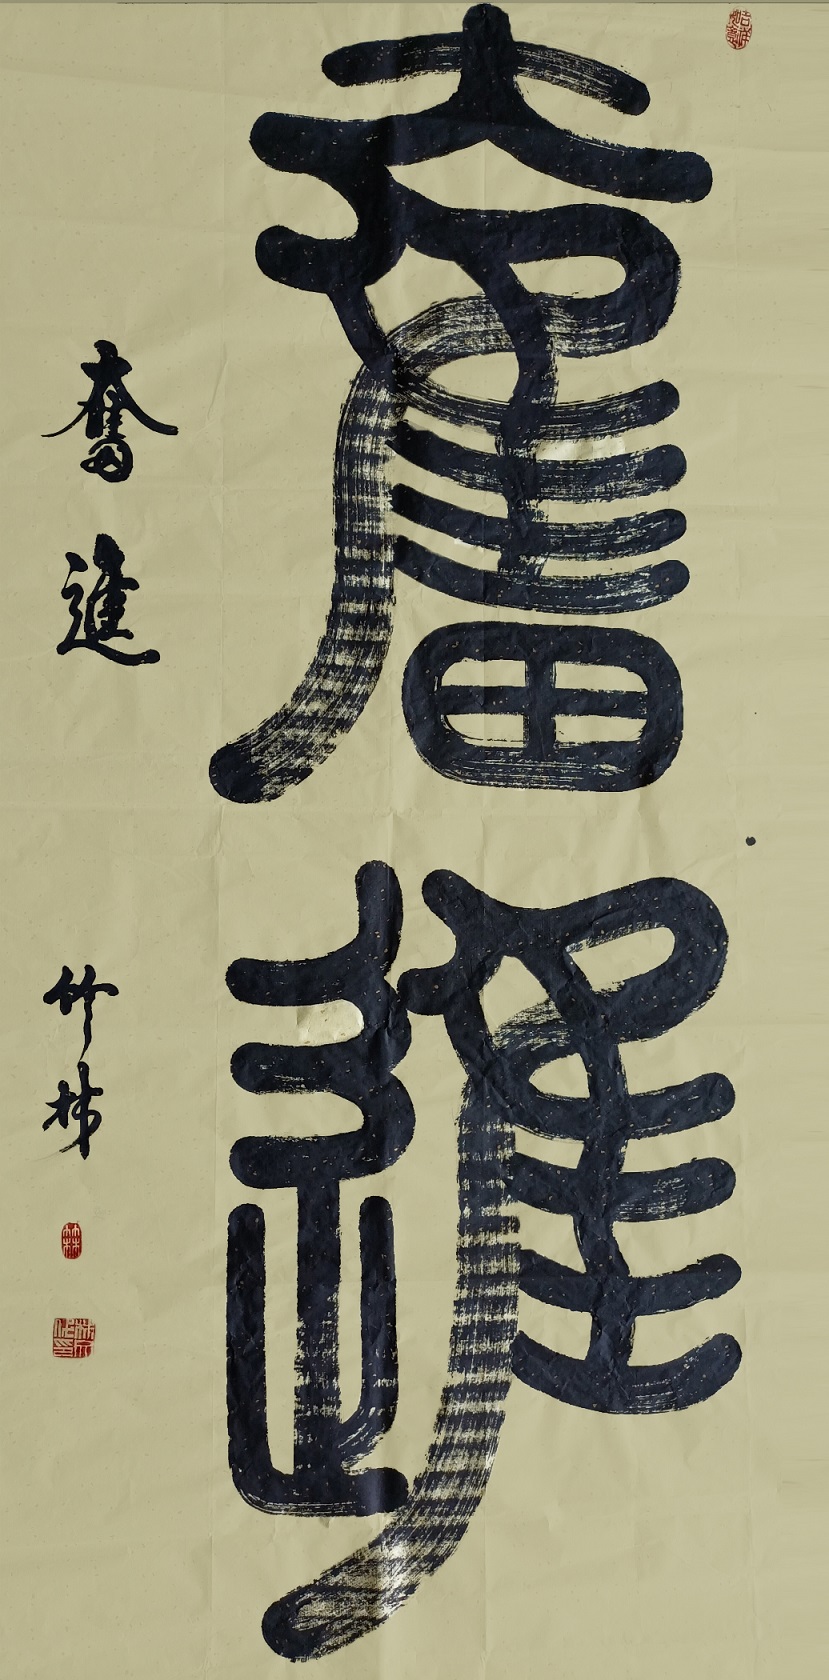 奮進
奮進
竹林